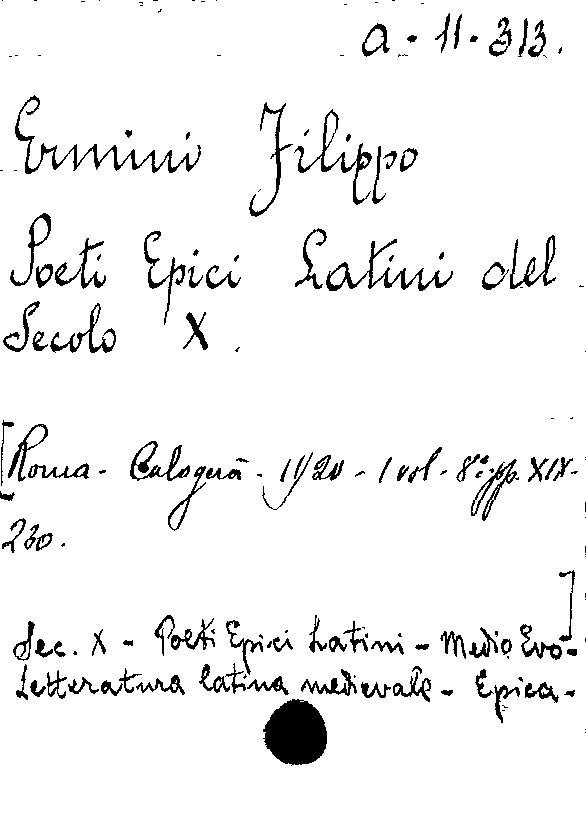 a-11-313.
Ermini Filippo
Poeti Epici Latini del
Secolo X.
[Roma - Calogerà - 1920 - 1 vol. 8º pp. XIX-
230.
]
Sec. X - Poeti Epici Latini - Medio Evo -
Letteratura latina medievale - Epica -